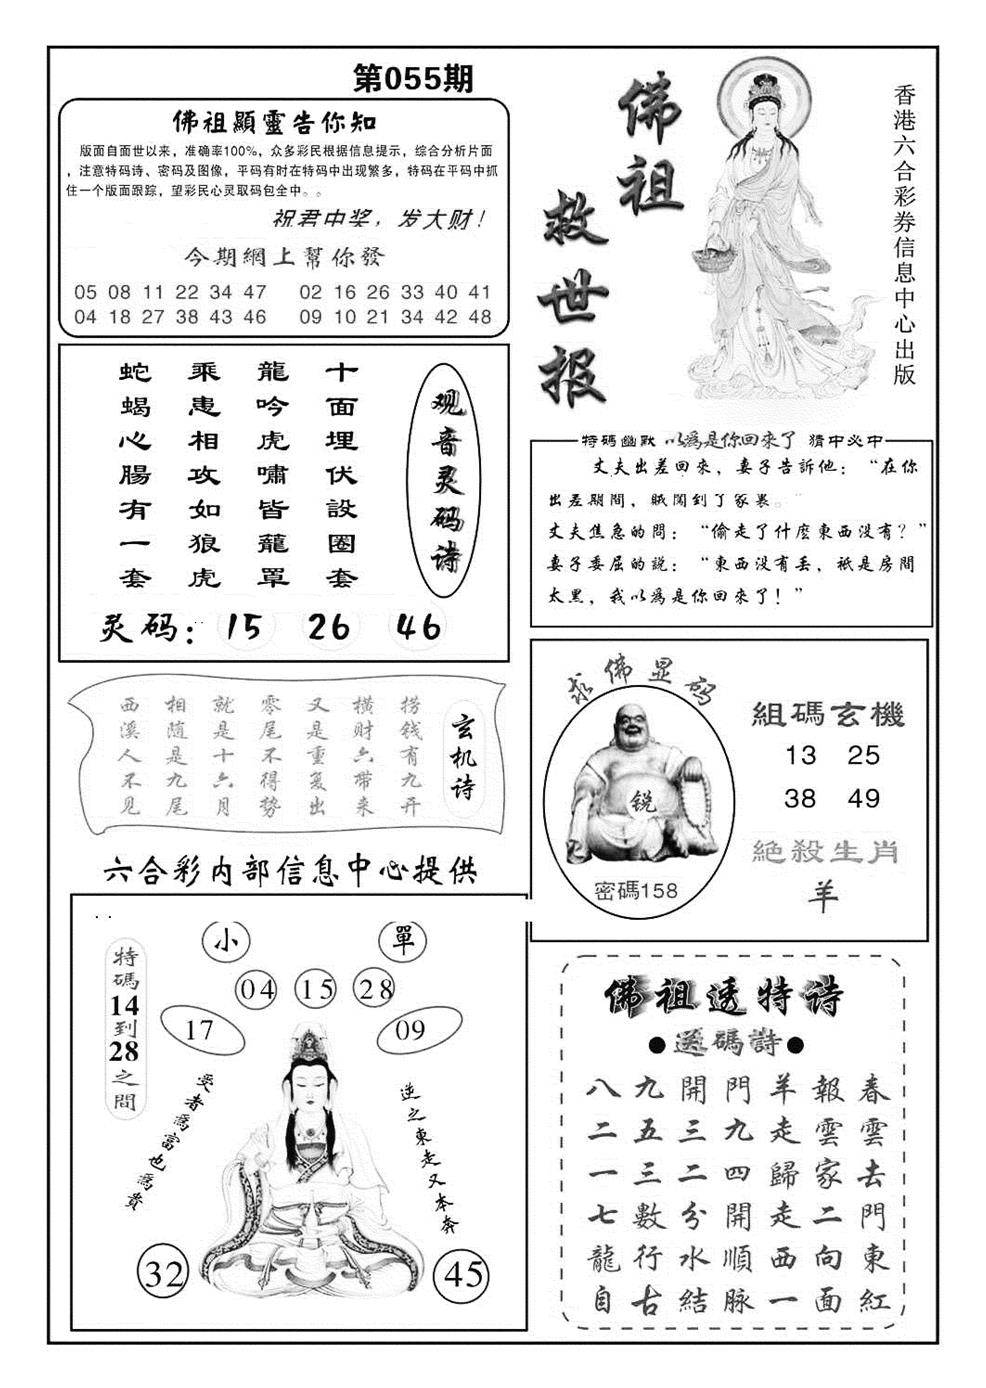 第055期
佛祖顯靈告你知
版面自面世以来，准确率100%，众多彩民根据信息提示，综合分析片面
，注意特码诗、密码及图像，平码有时在特码中出现繁多，特码在平码中抓
住一个版面跟踪，望彩民心灵取码包全中。。
祝君中奖，发大财！
今期網上幫你發
05 08 11 22 34 47 02 16 26 33 40 41
04 18 27 38 43 46 09 10 21 34 42 48
佛祖
救世报
香港六合彩券信息中心出版
观音灵码诗
十面埋伏設圈套
龍吟虎嘯皆蘢罩
乘患相攻如狼虎
蛇蝎心腸有一套
灵码：15 26 46
特碼幽默 以為是你回來了 猜中必中
丈夫出差回來，妻子告訴他：“在你
出差期間，賊闖到了家裏。”
丈夫焦急的問：“偷走了什麼東西没有？”
妻子委屈的說：“東西没有丢，祇是房間
太黑，我以為是你回來了！”
玄机诗
捞钱有九开
横财六带来
又是重复出
零尾不得势
就是十六月
相随是九尾
西溪人不见
求佛显码
锐
密碼158
組碼玄機
13 25
38 49
絕殺生肖
羊
六合彩内部信息中心提供
特碼14到28之間
小
單
04 15 28
17
09
受者為富也為貴
逆之東走又本奔
32
45
佛祖透特诗
●透碼詩●
春雲去門東紅
報雲家二向面
羊走歸走西一
門九四開順脉
開三二分水結
九五三數行古
八二一七龍自